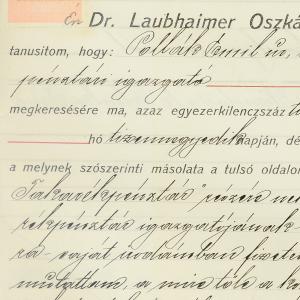 Én Dr. Laubhaimer Oszká
tanusitom, hogy: Pollák Emil úr,
pénztári igazgató
megkeresésére ma, azaz egyezerkilenczszáz
hó tizennegyedik napján, dé
a melynek szószerinti másolata a tulsó oldalon
Takarékpénztár" részére
rékpénztár igazgatójának
ra- saját irodámban fizeté
mutattam, a mire tőle a k